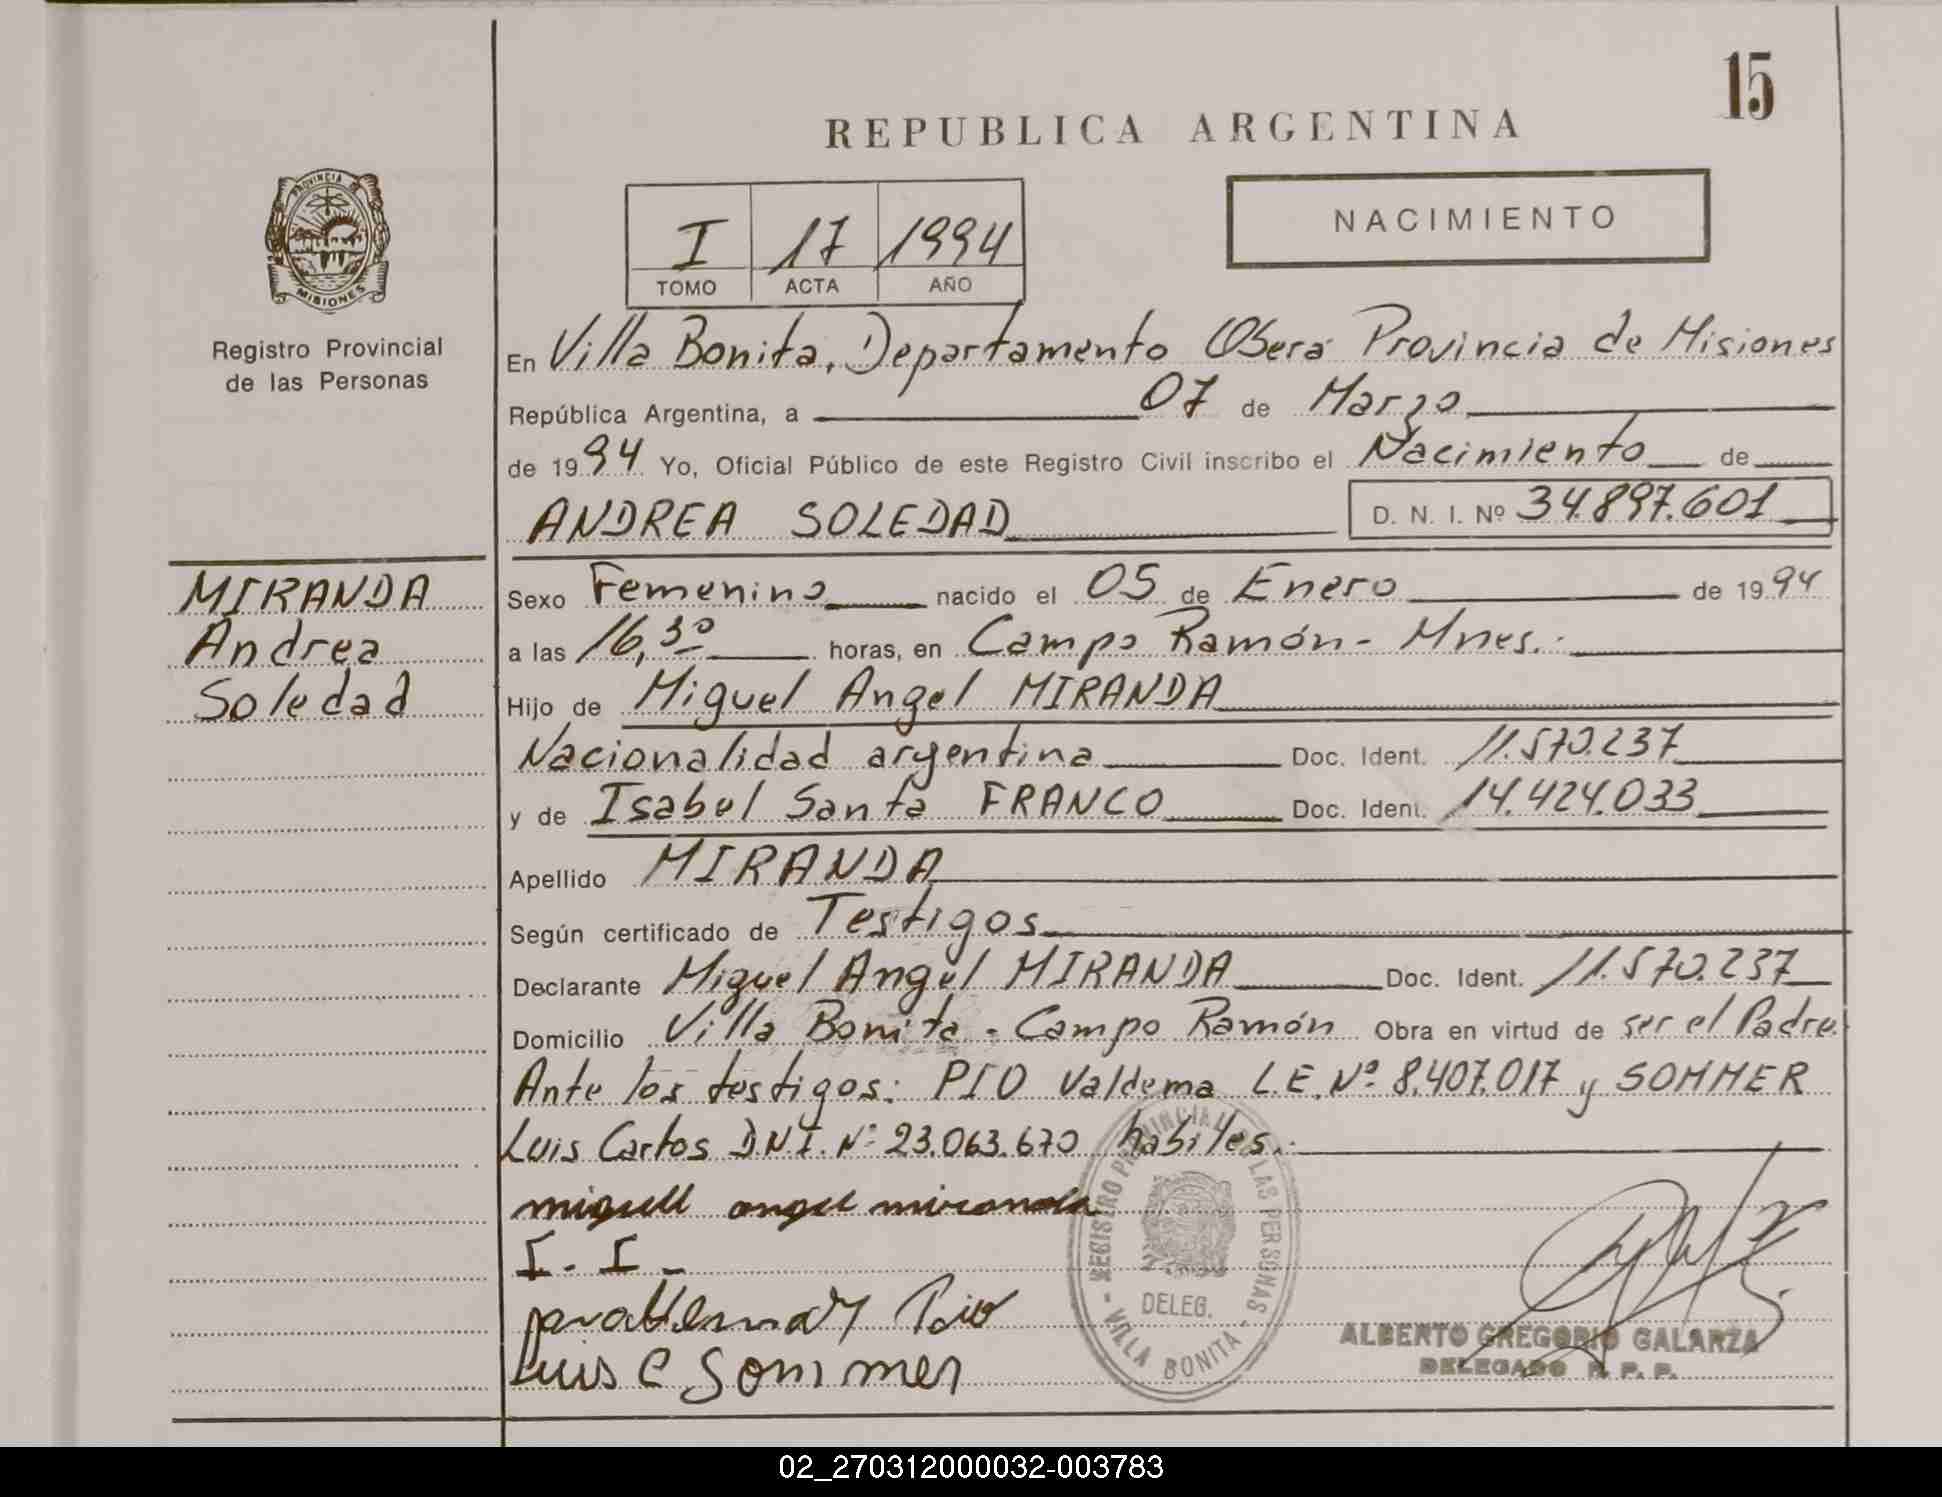 15
REPUBLICA ARGENTINA
PROVINCIA DE
MISIONES
Registro Provincial
de las Personas
I 17 1994
TOMO ACTA AÑO
NACIMIENTO
En Villa Bonita, Departamento Oberá Provincia de Misiones
República Argentina, a 07 de Marzo
de 1994 Yo, Oficial Público de este Registro Civil inscribo el Nacimiento de
ANDREA SOLEDAD D. N. I. Nº 34.897.601
MIRANDA
Andrea
Soledad
Sexo Femenino nacido el 05 de Enero de 1994
a las 16,30 horas, en Campo Ramón - Mnes.
Hijo de Miguel Angel MIRANDA
Nacionalidad argentina Doc. Ident. 11.570.237
y de Isabel Santa FRANCO Doc. Ident. 14.424.033
Apellido MIRANDA
Según certificado de Testigos
Declarante Miguel Angel MIRANDA Doc. Ident. 11.570.237
Domicilio Villa Bonita - Campo Ramón Obra en virtud de ser el Padre
Ante los testigos: PIO Valdema L.E. Nº 8.407.017 y SOMMER
Luis Carlos D.N.I. Nº 23.063.670 habiles.
miguell angel miranda
I. I -
Pio
Luis C Sommer
REGISTRO PROVINCIAL DE LAS PERSONAS
DELEG.
- VILLA BONITA -
ALBERTO GREGORIO GALARZA
DELEGADO R. P. P.
02_270312000032-003783